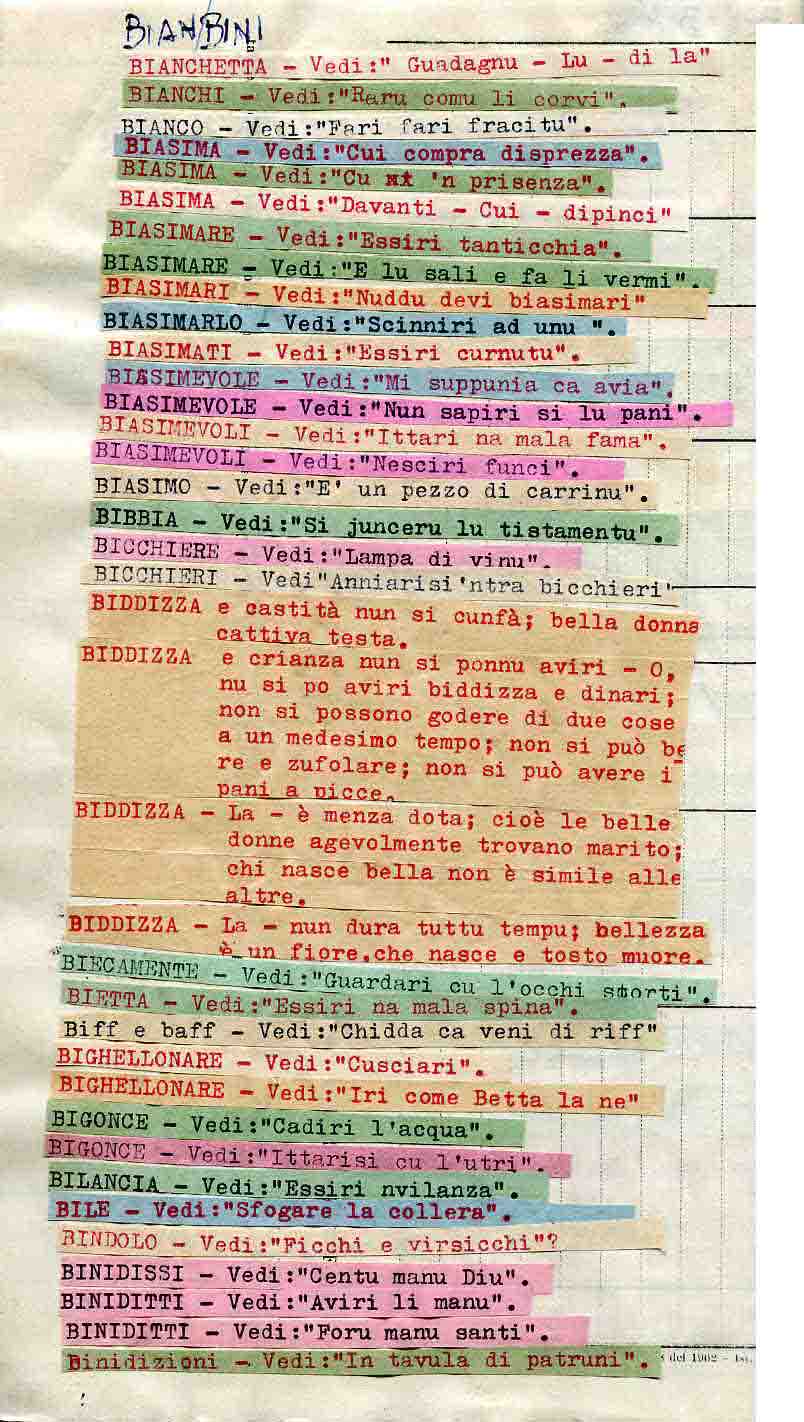 BIAN/BINI
BIANCHETTA - Vedi:" Guadagnu - Lu - di la"
BIANCHI - Vedi:"Raru comu li corvi".
BIANCO - Vedi:"Fari fari fracitu".
BIASIMA - Vedi:"Cui compra disprezza".
BIASIMA - Vedi:"Cu 'n prisenza".
BIASIMA - Vedi:"Davanti - Cui - dipinci"
BIASIMARE - Vedi:"Essiri tanticchia".
BIASIMARE - Vedi:"E lu sali e fa li vermi".
BIASIMARI - Vedi:"Nuddu devi biasimari"
BIASIMARLO - Vedi:"Scinniri ad unu ".
BIASIMATI - Vedi:"Essiri curnutu".
BIASIMEVOLE - Vedi:"Mi suppunia ca avia".
BIASIMEVOLE - Vedi:"Nun sapiri si lu pani".
BIASIMEVOLI - Vedi:"Ittari na mala fama".
BIASIMEVOLI - Vedi:"Nesciri funci".
BIASIMO - Vedi:"E' un pezzo di carrinu".
BIBBIA - Vedi:"Si junceru lu tistamentu".
BICCHIERE - Vedi:"Lampa di vinu".
BICCHIERI - Vedi"Anniarisi'ntra bicchieri"
BIDDIZZA e castità nun si cunfà; bella donna
cattiva testa.
BIDDIZZA e crianza nun si ponnu aviri - O,
nu si po aviri biddizza e dinari;
non si possono godere di due cose
a un medesimo tempo; non si può be
re e zufolare; non si può avere i
pani a picce.
BIDDIZZA - La - è menza dota; cioè le belle
donne agevolmente trovano marito;
chi nasce bella non è simile alle
altre.
BIDDIZZA - La - nun dura tuttu tempu; bellezza
è un fiore,che nasce e tosto muore.
BIECAMENTE - Vedi:"Guardari cu l'occhi storti".
BIETTA - Vedi:"Essiri na mala spina".
Biff e baff - Vedi:"Chidda ca veni di riff"
BIGHELLONARE - Vedi:"Cusciari".
BIGHELLONARE - Vedi:"Iri come Betta la ne"
BIGONCE - Vedi:"Cadiri l'acqua".
BIGONCE - Vedi:"Ittarisi cu l'utri".
BILANCIA - Vedi:"Essiri nvilanza".
BILE - Vedi:"Sfogare la collera".
BINDOLO - Vedi:"Ficchi e virsicchi"?
BINIDISSI - Vedi:"Centu manu Diu".
BINIDITTI - Vedi:"Aviri li manu".
BINIDITTI - Vedi:"Foru manu santi".
Binidizioni - Vedi:"In tavula di patruni".
del 1962 -